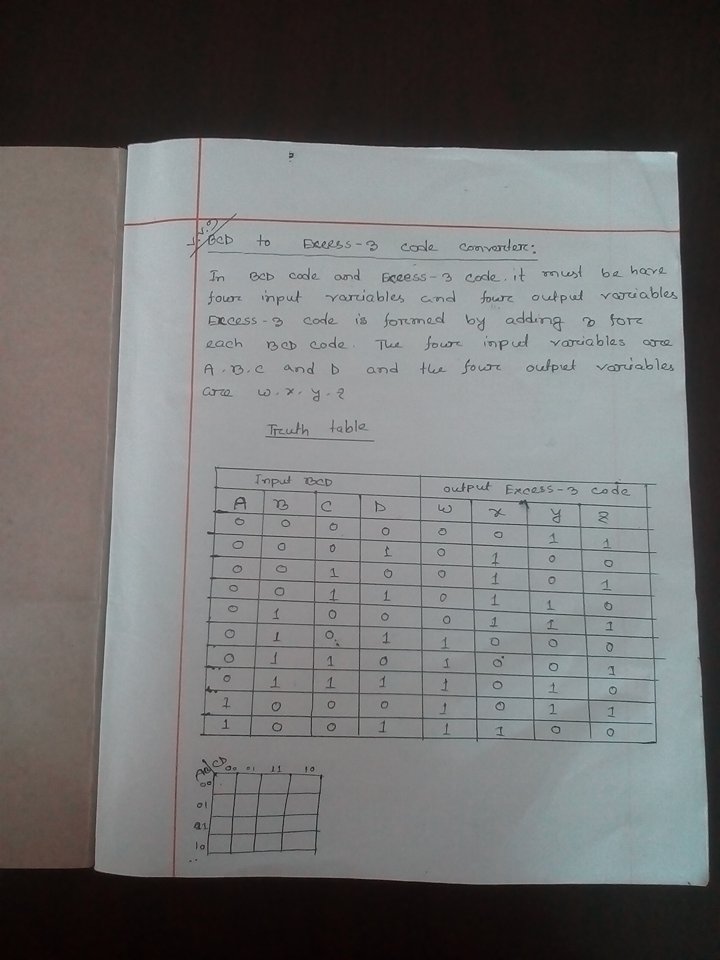 BCD to Excess-3 code converter:
In BCD code and Excess-3 code. it must be have
four input variables and four output variables
Excess-3 code is formed by adding 3 for
each BCD code. The four input variables are
A. B. C and D and the four output variables
are w. x. y. z
Truth table
Input BCD output Excess-3 code
A B C D w x y z
0 0 0 0 0 0 1 1
0 0 0 1 0 1 0 0
0 0 1 0 0 1 0 1
0 0 1 1 0 1 1 0
0 1 0 0 0 1 1 1
0 1 0 1 1 0 0 0
0 1 1 0 1 0 0 1
0 1 1 1 1 0 1 0
1 0 0 0 1 0 1 1
1 0 0 1 1 1 0 0
AB/CD 00 01 11 10
00
01
11
10